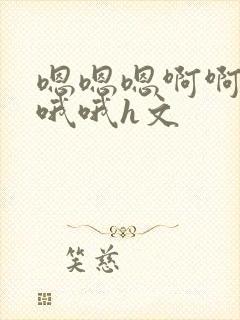 嗯嗯嗯啊啊
哦哦h文
笑慈